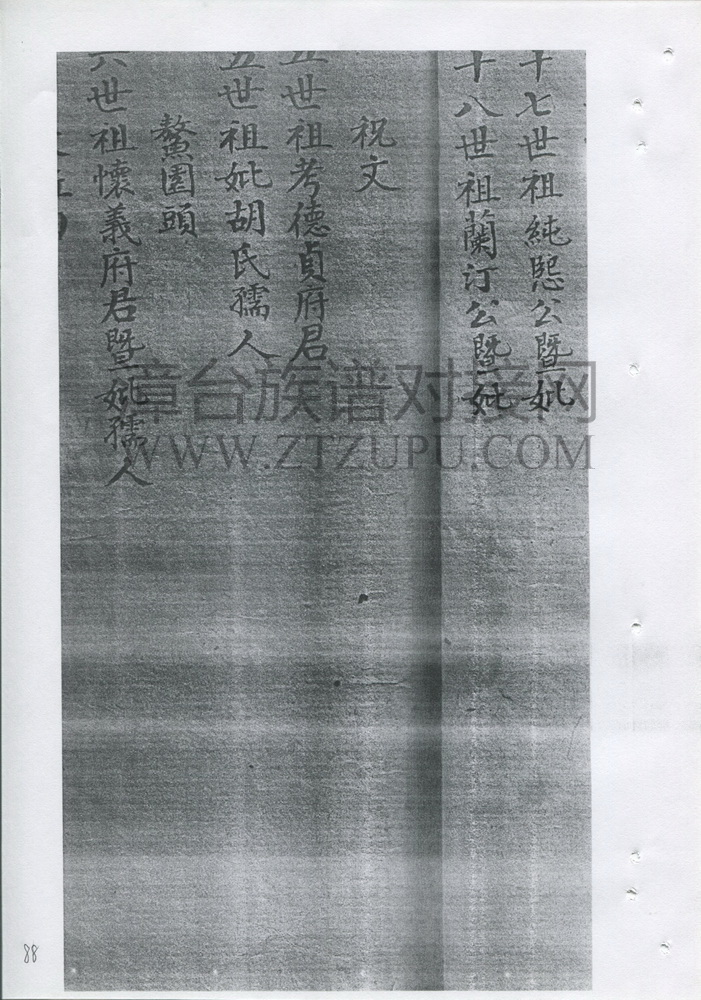 十七世祖純熙公暨妣
十八世祖蘭汀公暨妣
祝文
五世祖考德貞府君
五世祖妣胡氏孺人
鰲園頭
六世祖懷義府君暨妣孺人
章台族谱对接网
WWW.ZTZUPU.COM
88